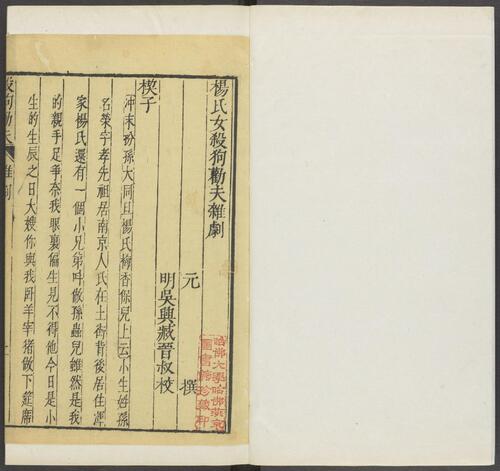 楊氏女殺狗勸夫雜劇
元 撰
明吳興臧晉叔校
楔子
沖末扮孫大同旦楊氏梅香保兒上云小生姓孫
名榮字孝先祖居南京人氏在土街背後居住渾
家楊氏還有一個小兄弟叫做孫蟲兒雖然是我
的親手足爭奈我眼裏偏生見不得他今日是小
生的生辰之日大嫂你與我卧羊宰猪做下筵席
殺狗勸夫 雜劇 一
哈佛大學哈佛燕京
圖書館珍藏印